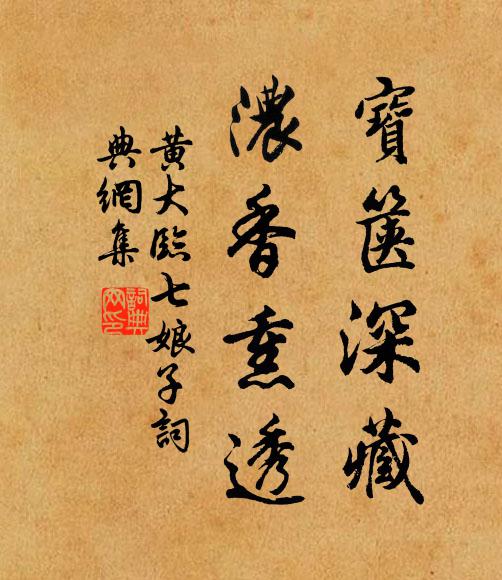 寶篋深藏
濃香熏透
黃大臨七娘子詞
典網集
詞典網印